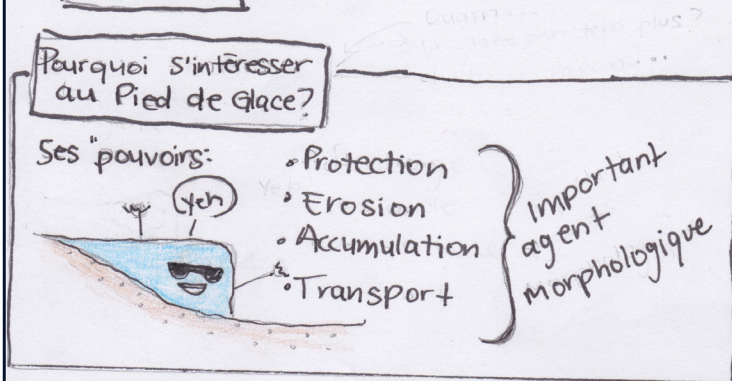 Pourquoi s'intéresser
au Pied de Glace?
Ses "pouvoirs:
• Protection
Yeh
• Erosion
• Accumulation
• Transport
Important
agent
morphologique